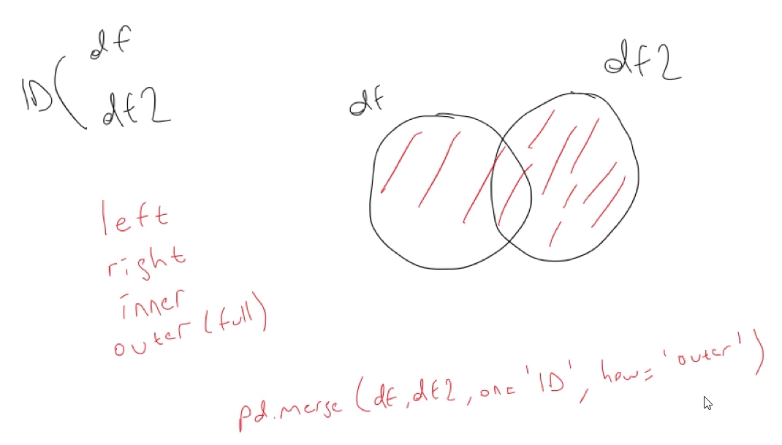 df
ID(
df2
df
df2
left
right
inner
outer (full)
pd.merge (df, df2, on= 'ID', how= 'outer')